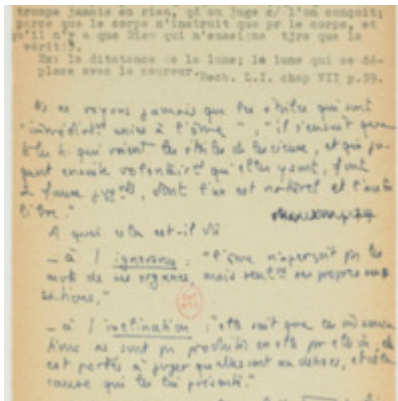 trompe jamais en rien, qd on juge s/ l'on conçoit;
parce que le corps n'instruit que pr le corps, et
qu'il n'y a que Dieu qui n'enseigne tjrs que la
vérité.
Ex: la distance de la lune; la lune qui se dé-
place avec le coureur. Rech. L.I. chap VII p.59.
Ns ne voyons jamais que les étoiles qui sont
"immédiatt unies à l'âme", "il s'ensuit que
ts les h. qui voient les étoiles ds les cieux, et qui ju-
gent ensuite volontairt qu'elles y sont, font
2 faux jugts, dont l'un est naturel et l'autre
libre."
A quoi cela est-il dû
- à l'ignorance : "l'âme n'aperçoit pas les
de ses organes, mais seult ses propres sen-
sations,"
- à l'inclination : "elle sait que ces
ne sont pas produites en elle par elle-
est portée à juger qu'elles sont au dehors, et ds la
cause qui les lui présente."